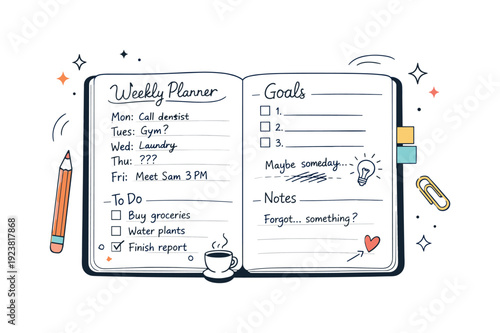 Weekly Planner
Mon: Call dentist
Tues: Gym?
Wed: Laundry
Thu: ???
Fri: Meet Sam 3 PM
To Do
Buy groceries
Water plants
Finish report
Goals
1.
2.
3.
Maybe someday...
Notes
Forgot... something?
Adobe Stock | #1923817868